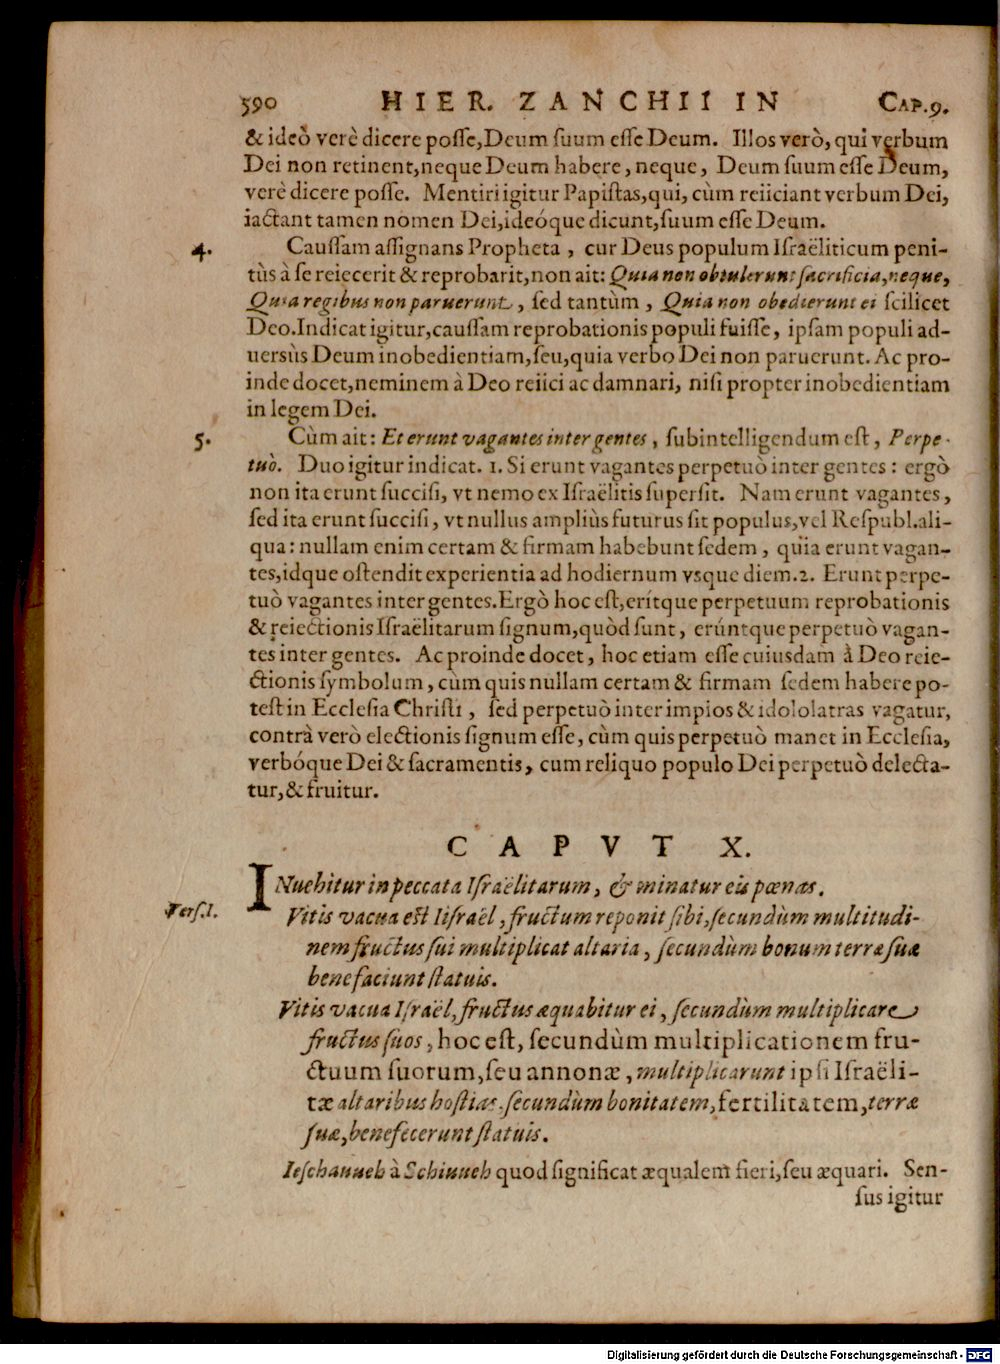 590 HIER. ZANCHII IN CAP. 9.
& ideò verè dicere posse, Deum suum esse Deum. Illos verò, qui verbum
Dei non retinent, neque Deum habere, neque, Deum suum esse Deum,
verè dicere posse. Mentiri igitur Papistas, qui, cùm reiiciant verbum Dei,
iactant tamen nomen Dei, ideóque dicunt, suum esse Deum.
4. Caussam assignans Propheta, cur Deus populum Israëliticum peni-
tùs à se reiecerit & reprobarit, non ait: Quia non obtulerunt sacrificia, neque,
Quia regibus non paruerunt, sed tantùm, Quia non obedierunt ei scilicet
Deo. Indicat igitur, caussam reprobationis populi fuisse, ipsam populi ad-
uersùs Deum inobedientiam, seu, quia verbo Dei non paruerunt. Ac pro-
inde docet, neminem à Deo reiici ac damnari, nisi propter inobedientiam
in legem Dei.
5. Cùm ait: Et erunt vagantes inter gentes, subintelligendum est, Perpe-
tuò. Duo igitur indicat. 1. Si erunt vagantes perpetuò inter gentes: ergò
non ita erunt succisi, vt nemo ex Israëlitis supersit. Nam erunt vagantes,
sed ita erunt succisi, vt nullus ampliùs futurus sit populus, vel Respubl. ali-
qua: nullam enim certam & firmam habebunt sedem, quia erunt vagan-
tes, idque ostendit experientia ad hodiernum vsque diem. 2. Erunt perpe-
tuò vagantes inter gentes. Ergò hoc est, erítque perpetuum reprobationis
& reiectionis Israëlitarum signum, quòd sunt, erúntque perpetuò vagan-
tes inter gentes. Ac proinde docet, hoc etiam esse cuiusdam à Deo reie-
ctionis symbolum, cùm quis nullam certam & firmam sedem habere po-
test in Ecclesia Christi, sed perpetuò inter impios & idololatras vagatur,
contrà verò electionis signum esse, cùm quis perpetuò manet in Ecclesia,
verbóque Dei & sacramentis, cum reliquo populo Dei perpetuò delecta-
tur, & fruitur.
CAPVT X.
INuehitur in peccata Israëlitarum, & minatur eis pœnas.
Vers. 1. Vitis vacua est Iisraël, fructum reponit sibi, secundùm multitudi-
nem fructus sui multiplicat altaria, secundùm bonum terræ suæ
benefaciunt statuis.
Vitis vacua Israël, fructus æquabitur ei, secundùm multiplicare
fructus suos, hoc est, secundùm multiplicationem fru-
ctuum suorum, seu annonæ, multiplicarunt ipsi Israëli-
tæ altaribus hostias, secundùm bonitatem, fertilitatem, terræ
suæ, benefecerunt statuis.
Ieschauueh à Schiuueh quod significat æqualem fieri, seu æquari. Sen-
sus igitur
Digitalisierung gefördert durch die Deutsche Forschungsgemeinschaft - DFG